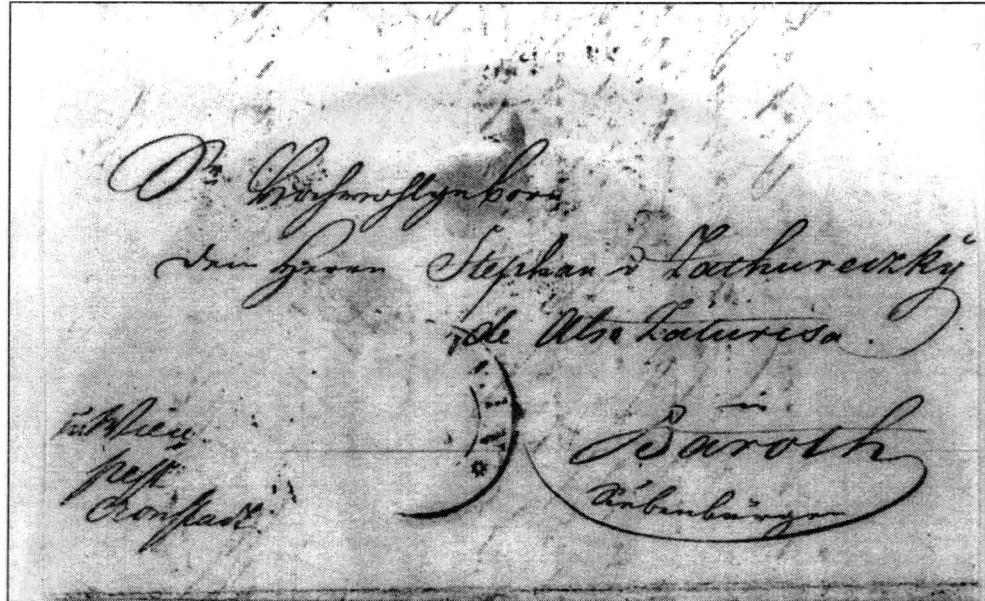 Sr. Hochwohlgeborn
dem Herrn Stephan v Zathureczky
de Alsa Zaturcsa.
in
Baroth
Siebenbürgen
Wien
pest
Cronstadt